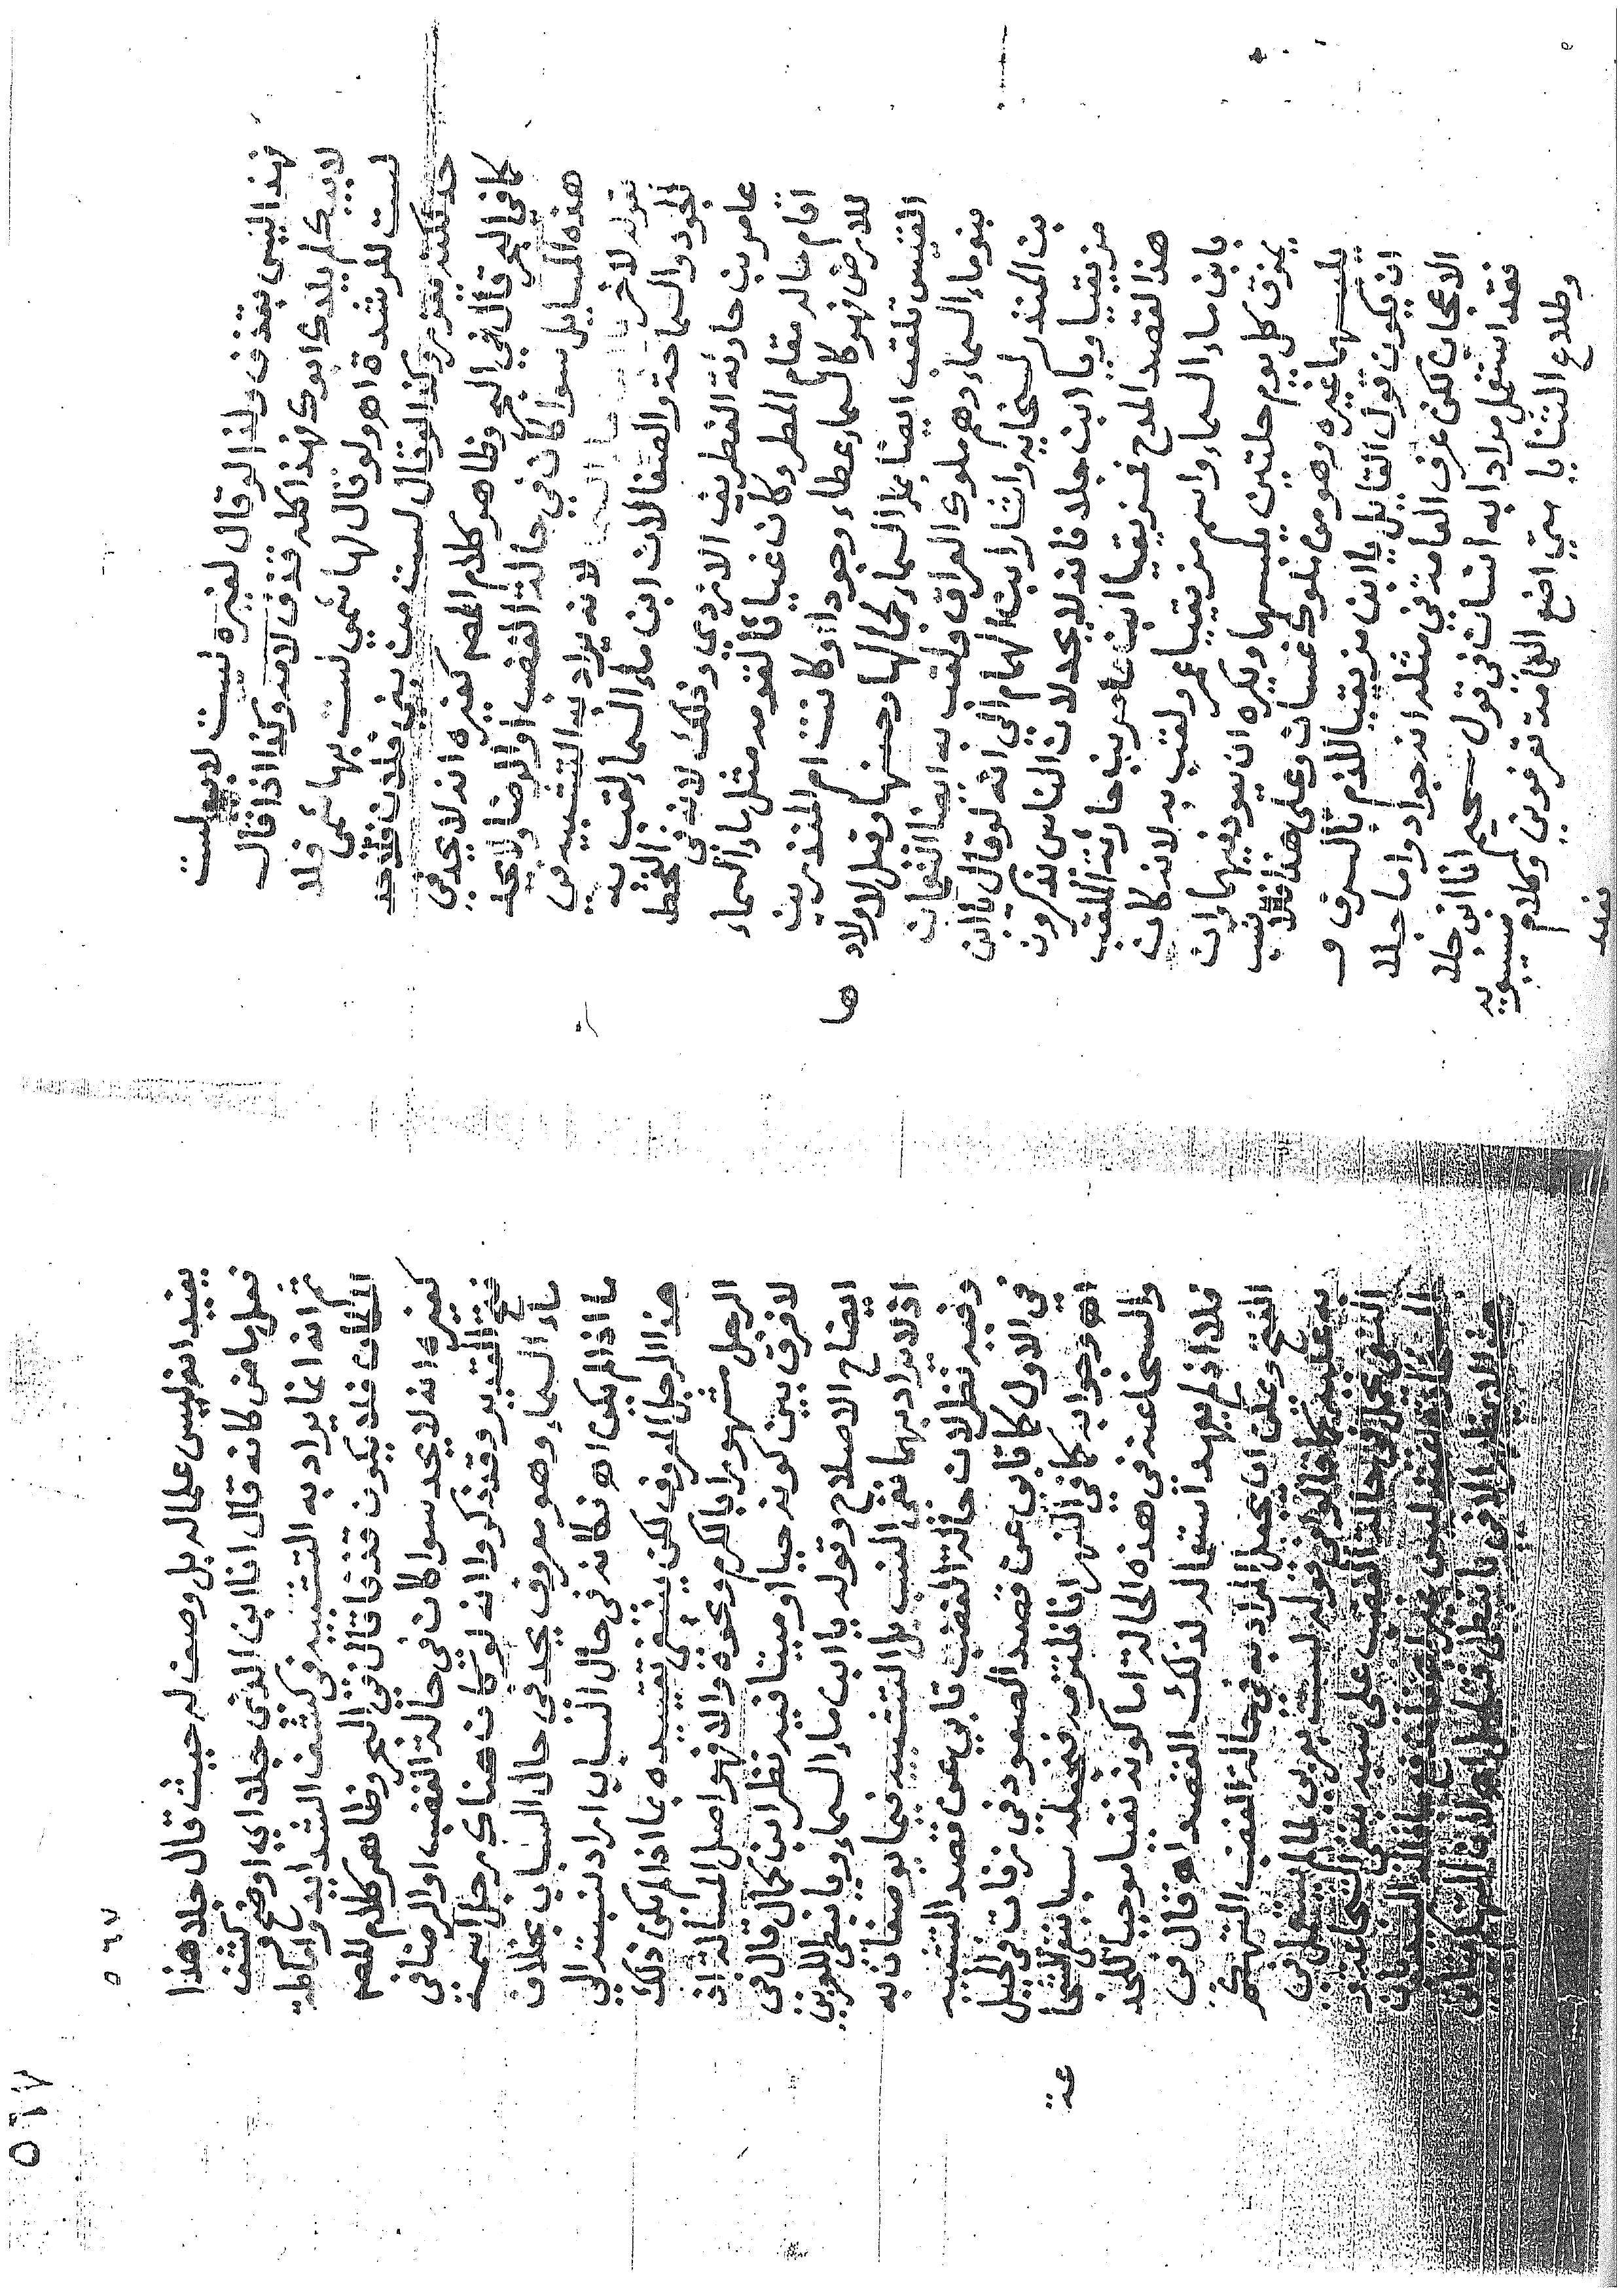 فهذا ليس بقذف ولذا لو قال لغيره لست لاب لست
لابيك لم يلدك ابوك فهذا كله قذف لامه وكذا اذا قال
لست للرشدة اهـ ولو قال لها شمي لست بها شمي فلا
حد لكنه يعزر وكذا لو قال لست من بني فلان فلا حد
كما في البحر قال في البحر وظاهر كلام المص كغيره انه لا يحد في
هذه المسايل سوا كان في حالة الغضب او الرضا ولا يحد
بقوله لاخر يا ابن ماء السماء لانه يراد به التشبيه في
الجود والسماحة والصفا لان ابن ماء السماء لقب به
عامر بن حارثة الغطريف الازدي وذلك لانه في القحط
اقام ماله مقام المطر وكان غياثا لقومه مثل ماء السماء
للارض فهو كالسماء عطاء وجودا وكانت ام المنذر بن
القيس تلقب ايضا بماء السماء لجمالها وحسنها وقيل لاولادها
بنوماء السماء وهم ملوك العراق ولقب به ايضا النعمان
بن المنذر لسخايه واشار ابن الهمام الى انه لو قال يا ابن
مزيقيا ويا ابن جلا فانه لا يحد لان الناس يذكرون
هذا لقصد المدح فمزيقيا ابن عامر بن حارثة الملقب
بابن ماء السماء واسم مزيقيا عمر ولقب به لانه كان
يمزق كل يوم حلتين يلبسهما ويكره ان يعود فيهما وان
يلبسهما غيره وهو من ملوك غسان وعلى هذا فلا يجب
ان يكون قول القايل يا ابن مزيقيا للذم بالسرف و
الاعجاب لكن عرف العامة في مثله انه جواد واما جلا
فقد استعمل مرادا به انسان في قول سحيم انا ابن جلا
وطلاع الثنايا متى اضع العمامة تعرفوني وكلام سيبويه
يفيد
٥٦٧
٥٦٧
يفيد انه ليس علما له بل وصف له حيث قال جلا هذا
فعل ماض كانه قال انا ابن الذي جلا اي اوضح وكشف
ثم انه انما يراد به التشبيه في كشف الشدايد واماطة
المكاره فلا يكون قذفا قال في البحر وظاهر كلام المص
كغيره انه لا يحد سوا كان في حالة الغضب او الرضا في
فتح القدير وقد ذكروا انه لو كان هناك رجل اسمه
ماء السماء وهو معروف يحد في حال السباب بخلاف
ما اذا لم يكن اهـ فكانه في حال السباب اراد نسبته الى
هذا الرجل المعروف لكن ينبغي تقييده بما اذا لم يكن ذلك
الرجل مشهورا بالكرم ونحوه والا فهو اصل المسالة اذ
لا فرق بين كونه حيا او ميتا فيه نظر ابن كمال قال في
ايضاح الاصلاح وقوله يا ابن ماء السماء ويا نبطي للعربي
اذ لا يراد بهما نفي النسب بل التشبيه فيما يوصفان به
وفيه نظر لان حالة الغضب تابى عن قصد التشبيه
في الاول كما تابى عن قصد الصعود في زنات في الجبل
اهـ وجوابه كما في النهر انا نلتزمه فنجعله سبا بنفي السخا
والسخا عنه في هذه الحالة اما كونه نفيا موجبا للحد
فلا اذ لم يعهد استعماله لذلك القصد اهـ قال في
الفتح ويمكن ان يجعل المراد به في حالة الغضب التهكم
به عليه كما قلنا في قوله لست بعربي لما لم يستعمل في
النفي يحمل في حالة الغضب على سبه بنفي الشجاعة و
السخاء عنه